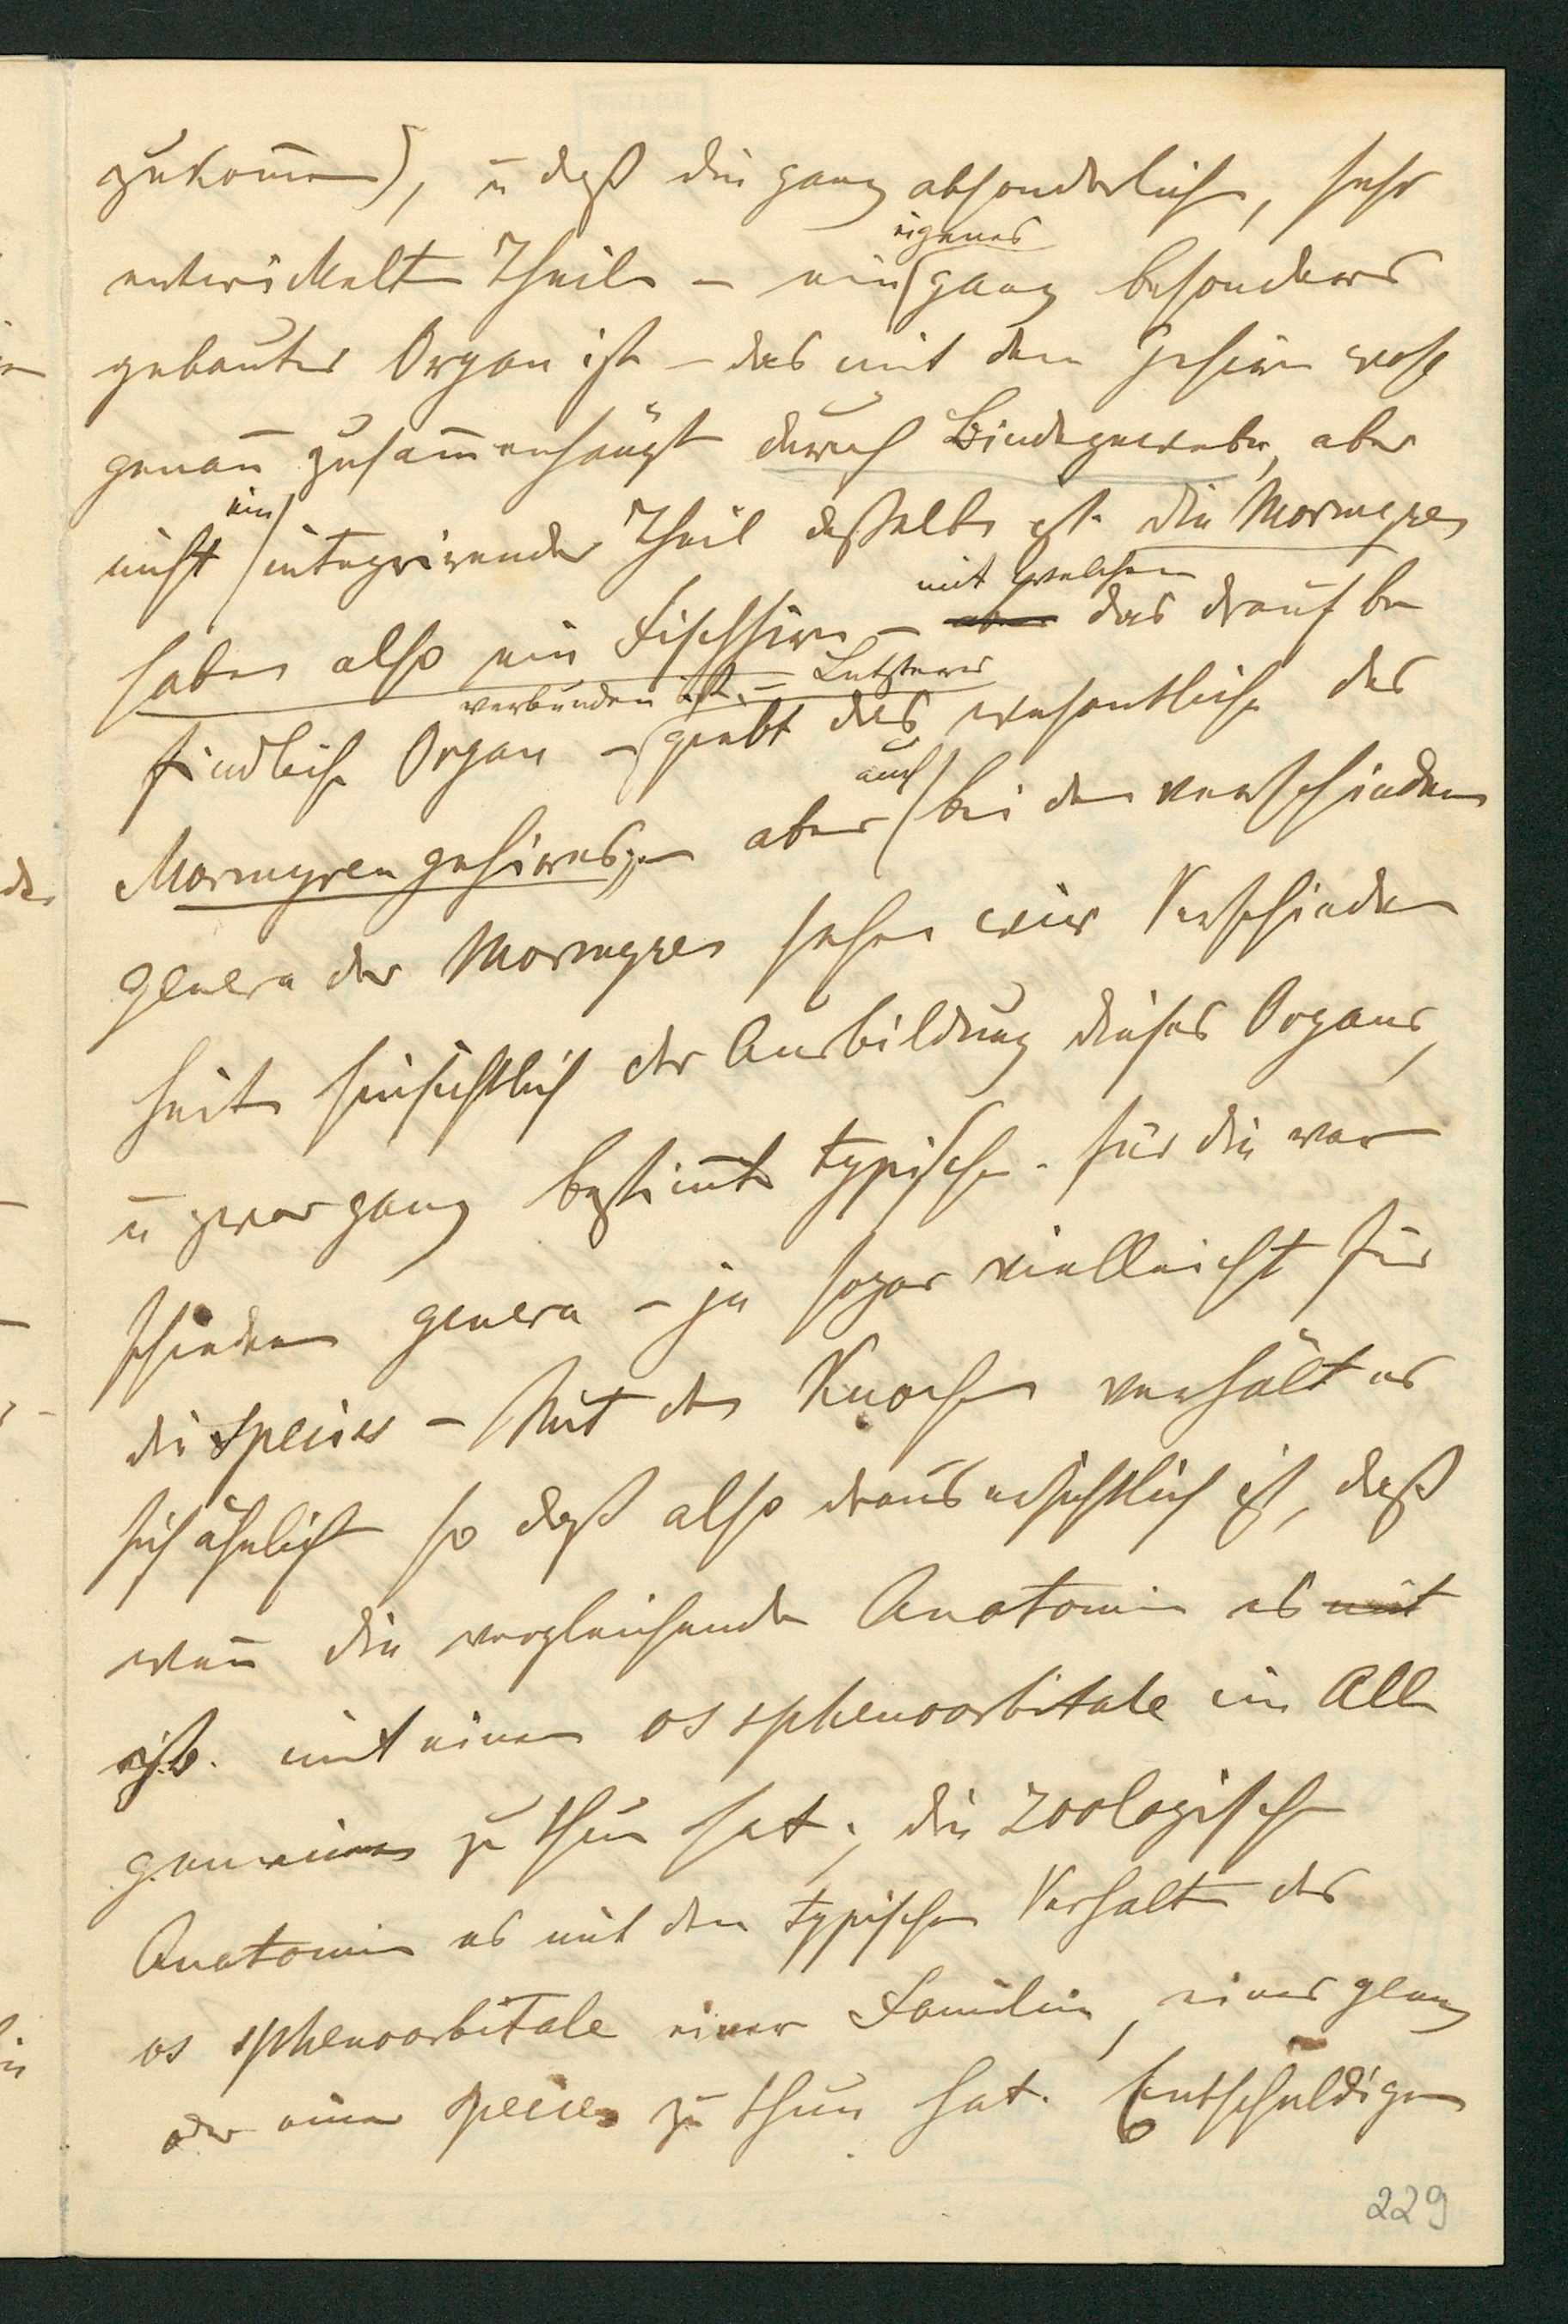 zukom̄en), ū daß die ganz absonderlich, sehr
entwickelten Theile – ein eigenes ganz besonders
gebautes Organ ist – das mit dem Gehirn wohl
genau zusam̄enhängt durch Bindegewebe, aber
nicht ein integrirender Theil desselben ist. die Mormyren
haben also ein Fischhirn – aber mit welchem das drauf be
findliche Organ – verbunden ist. – Letzteres giebt das wesentliche des
Mormyrengehirnes, – aber auch bei den verschiedenen
genera der Mormyren sehen wir Verschieden
heiten hinsichtlich der Ausbildung dieses Organs,
ū zwar ganz bestim̄te typische. für die ver
schiedenen genera – ja sogar vielleicht für
die Species – Mit den Knochen verhält es
sich ähnlich so daß also draus ersichtlich ist, daß
wen̄ die vergleichende Anatomie es mit
z.B. mit einem os sphenoorbitale im All
gemeinen zu thun hat; die zoologische
Anatomie es mit dem typischen Verhalten des
os sphenoorbitale einer Familie, eines genus
oder einer species zu thun hat. Entschuldigen
229